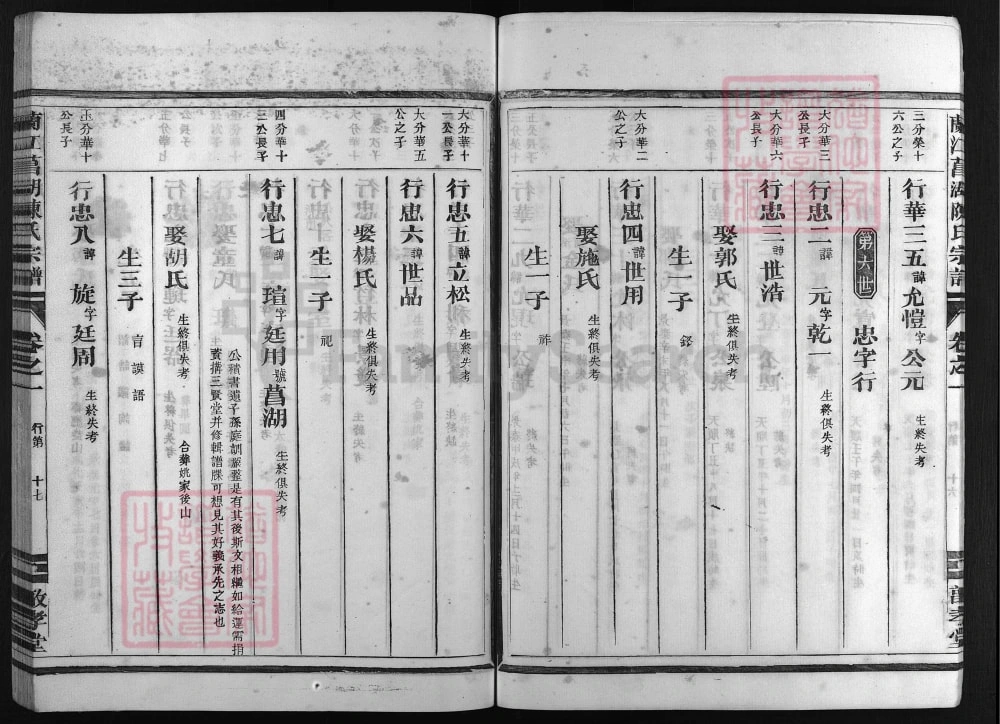 三分榮十六公之子
行華三五諱允愷字公元 生終俱失考
第六世 忠字行
大分華三公長子
行忠二諱元字乾一 生終俱失考
大分華六公長子
行忠三諱世浩 生終俱失考
娶郭氏 生終俱失考
生一子 鉁
大分華二公之子
行忠四諱世用 生終俱失考
娶施氏 生終俱失考
生一子 祥
大分華十一公長子
行忠五諱立松 生終俱失考
大分華五公之子
行忠六諱世品 生終俱失考
娶楊氏 生終俱失考
生一子 祝
四分華十三公長子
行忠七諱瑄字廷用號菖湖 生終俱失考
公積書遺子孫庭訓嚴整是有其後斯文相繼如給運需捐
貲搆三賢堂并修輯譜牒可想見其好義承先之志也
娶胡氏 生終俱失考 合葬姚家後山
生三子 言 謨 語
五分華十公長子
行忠八諱旋字廷周 生終失考
蘭江菖湖陳氏宗譜 卷之一 行第 十七 敬孝堂